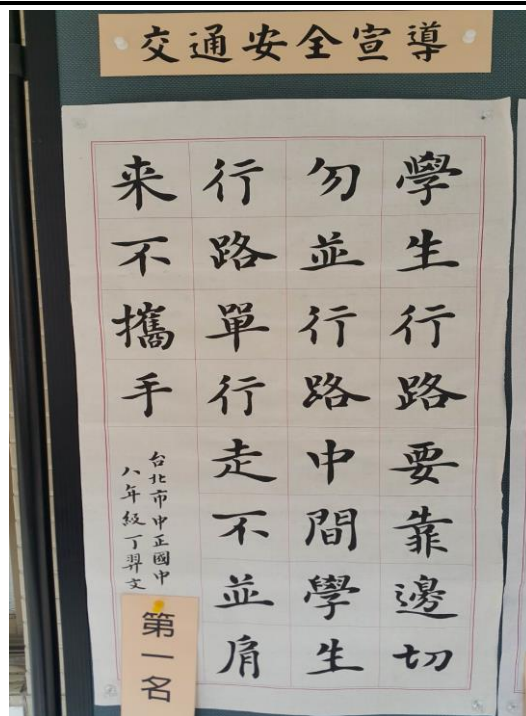 交通安全宣導
學生行路要靠邊切
勿並行路中間學生
行路單行走不並肩
来不攜手
台北市中正國中
八年級丁羿文
第一名